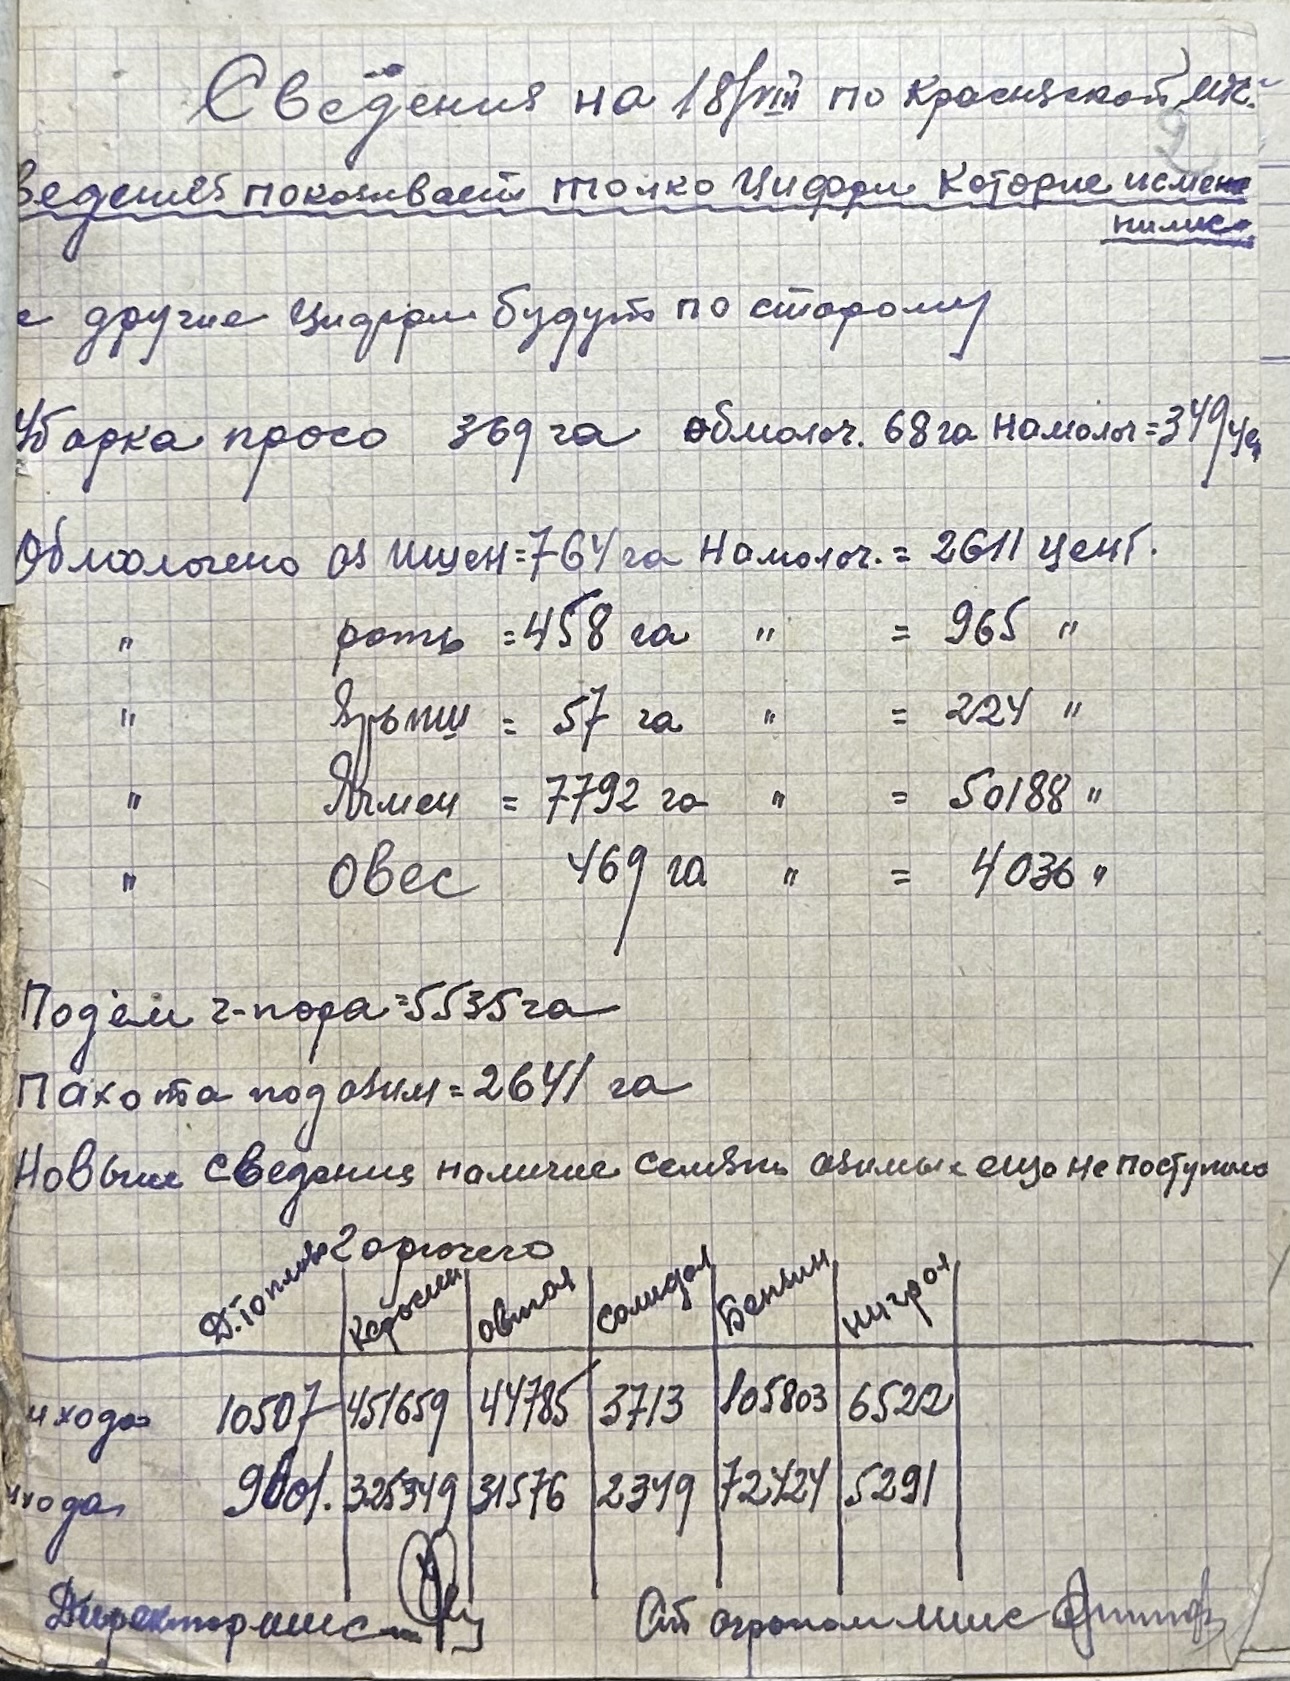 Сведения на 18/VIII по Красиязской МТС
ведения показивает толко Цифри Которие исмене
нилис
е другие Цифри будут по старому
Уборка просо 369 га обмолоч. 68 га Намолоч = 349 цен
Обмолочено оз пшен = 764 га Намолоч. = 2611 цент.
" рожь = 458 га " = 965 "
" Яр.пш = 57 га " = 224 "
" Ячмен = 7792 га " = 50188 "
" Овес 469 га " = 4036 "
Подем ч-пора = 5535 га
Пахота под озим = 2641 га
Новые сведения наличие семян озимых еще не поступило
Горючего
Д.Топливо Керосин автол солидол Бензин нигрол
ихода 10507 451659 44785 3713 105803 6522
хода 325949 31576 2349 72424 5291
Директор мтс Ст агроном мтс